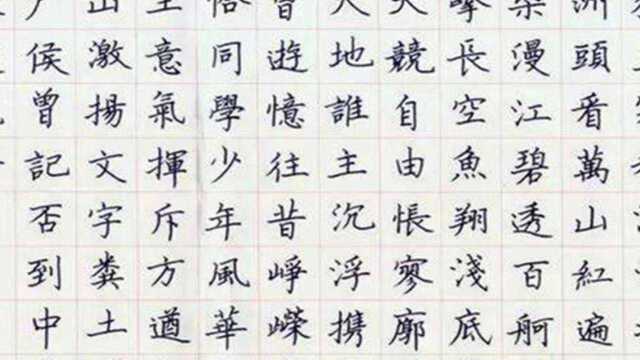 洲頭看萬山紅遍
染漫江碧透百舸
擊長空魚翔淺底
天競自由悵寥廓
大地誰主沉浮携
曾遊憶往昔崢嶸
恰同學少年風華
生意氣揮斥方遒
山激揚文字糞土
户侯曾記否到中